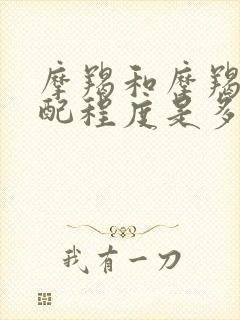 摩羯和摩羯
配程度是多
我有一刀